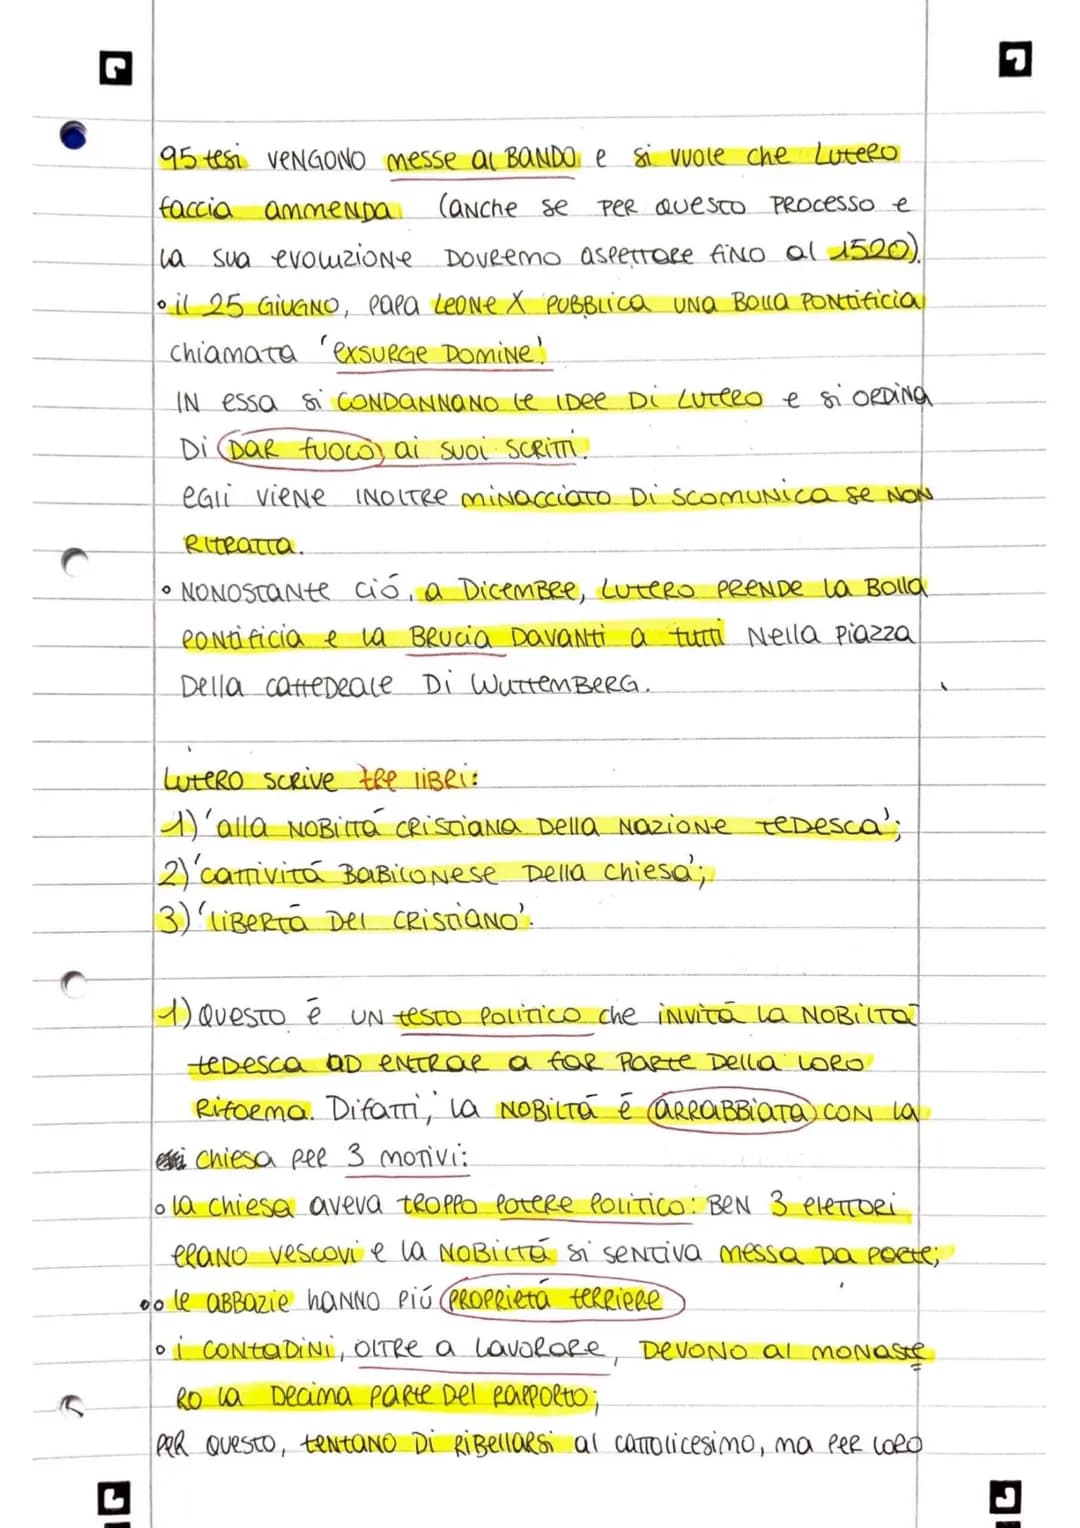 95 tesi VENGONO messe al BANDO e si vuole che LUTERO
faccia ammenda (anche se PER QUESTO PROCESSO e
la sua evoluzione DOVREMO ASPETTARE fiNO al 1520).
• il 25 GIUGNO, PAPA LEONE X PUBBLICA UNA BOLLA PONTIFICIA
chiamata 'EXSURGE DOMINE'.
IN essa si CONDANNANO le IDEE DI LUTERO e si ORDINA
Di DAR fuoco ai suoi SCRITTI.
EGli VIENE INOLTRE MINACCIATO DI SCOMUNICA se NON
RITRATTA.
• NONOSTANTE ció, a DICEMBRE, LUTERO PRENDE la BOLLA
PONTIFICIA e la BRUCIA DAVANTI a tutti Nella PIAZZA
Della CATTEDRALE Di WUTTEMBERG.
LUTERO SCRIVE tre liBRi:
1) 'alla NOBILTÁ CRISTIANA Della NAZIONE TEDESCA';
2) 'cattivitá BABILONESE Della chiesa';
3) 'LIBERTÁ Del CRISTIANO'.
1) QUESTO é UN testo POLITICO che invitá la NOBILTÁ
tedesca AD ENTRAR a far PARTE Della LORO
Riforma. Difatti, la NOBILTÁ é ARRABBIATA CON la
chiesa per 3 motivi:
• la chiesa aveva TROPPO POTERE POLITICO: BEN 3 elettori
ERANO vescovi e la NOBILTÁ si SENTIVA messa DA PARTE;
•• le ABBAZIE hanno piú PROPRIETÁ terriere
• i CONTADINI, OLTRE a LAVORARE, DEVONO al monaste
RO la Decima PARTE Del RAPPORTO;
PER QUESTO, tentano Di RiBellarsi al CATTOLICESIMO, ma PER LORO